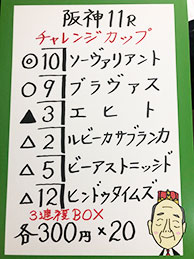 阪神11R
チャレンジカップ
◎10 ソーヴァリアント
○9 ブラヴァス
▲3 エヒト
△2 ルビーカサブランカ
△5 ビーアストニッシド
△12 ヒンドゥタイムズ
3連複BOX
各-300円×20